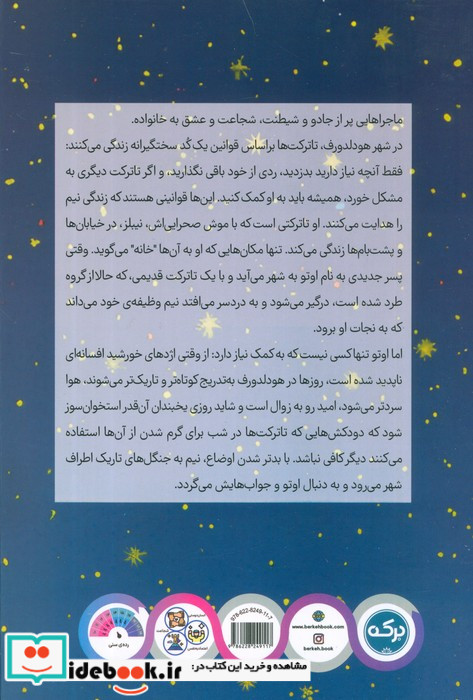 ماجراهایی پر از جادو و شیطنت، شجاعت و عشق به خانواده.
در شهر هودلدورف، تاترکت‌ها براساس قوانین یک کُد سختگیرانه زندگی می‌کنند:
فقط آنچه نیاز دارید بدزدید، ردی از خود باقی نگذارید، و اگر تاترکت دیگری به
مشکل خورد، همیشه باید به او کمک کنید. این‌ها قوانینی هستند که زندگی نیم
را هدایت می‌کنند. او تاترکتی است که با موش صحرایی‌اش، نیبلز، در خیابان‌ها
و پشت‌بام‌ها زندگی می‌کند. تنها مکان‌هایی که او به آن‌ها "خانه" می‌گوید. وقتی
پسر جدیدی به نام اوتو به شهر می‌آید و با یک تاترکت قدیمی، که حالا از گروه
طرد شده است، درگیر می‌شود و به دردسر می‌افتد نیم وظیفه‌ی خود می‌داند
که به نجات او برود.
اما اوتو تنها کسی نیست که به کمک نیاز دارد: از وقتی اژدهای خورشید افسانه‌ای
ناپدید شده است، روزها در هودلدورف به‌تدریج کوتاه‌تر و تاریک‌تر می‌شوند، هوا
سردتر می‌شود، امید رو به زوال است و شاید روزی یخبندان آن‌قدر استخوان‌سوز
شود که دودکش‌هایی که تاترکت‌ها در شب برای گرم شدن از آن‌ها استفاده
می‌کنند دیگر کافی نباشد. با بدتر شدن اوضاع، نیم به جنگل‌های تاریک اطراف
شهر می‌رود و به دنبال اوتو و جواب‌هایش می‌گردد.
رده‌ی سنی
978-622-8249-11-7
9786228249117
www.berkehbook.com
berkeh.book
برکه
مشاهده و خرید این کتاب در:
idebook.ir